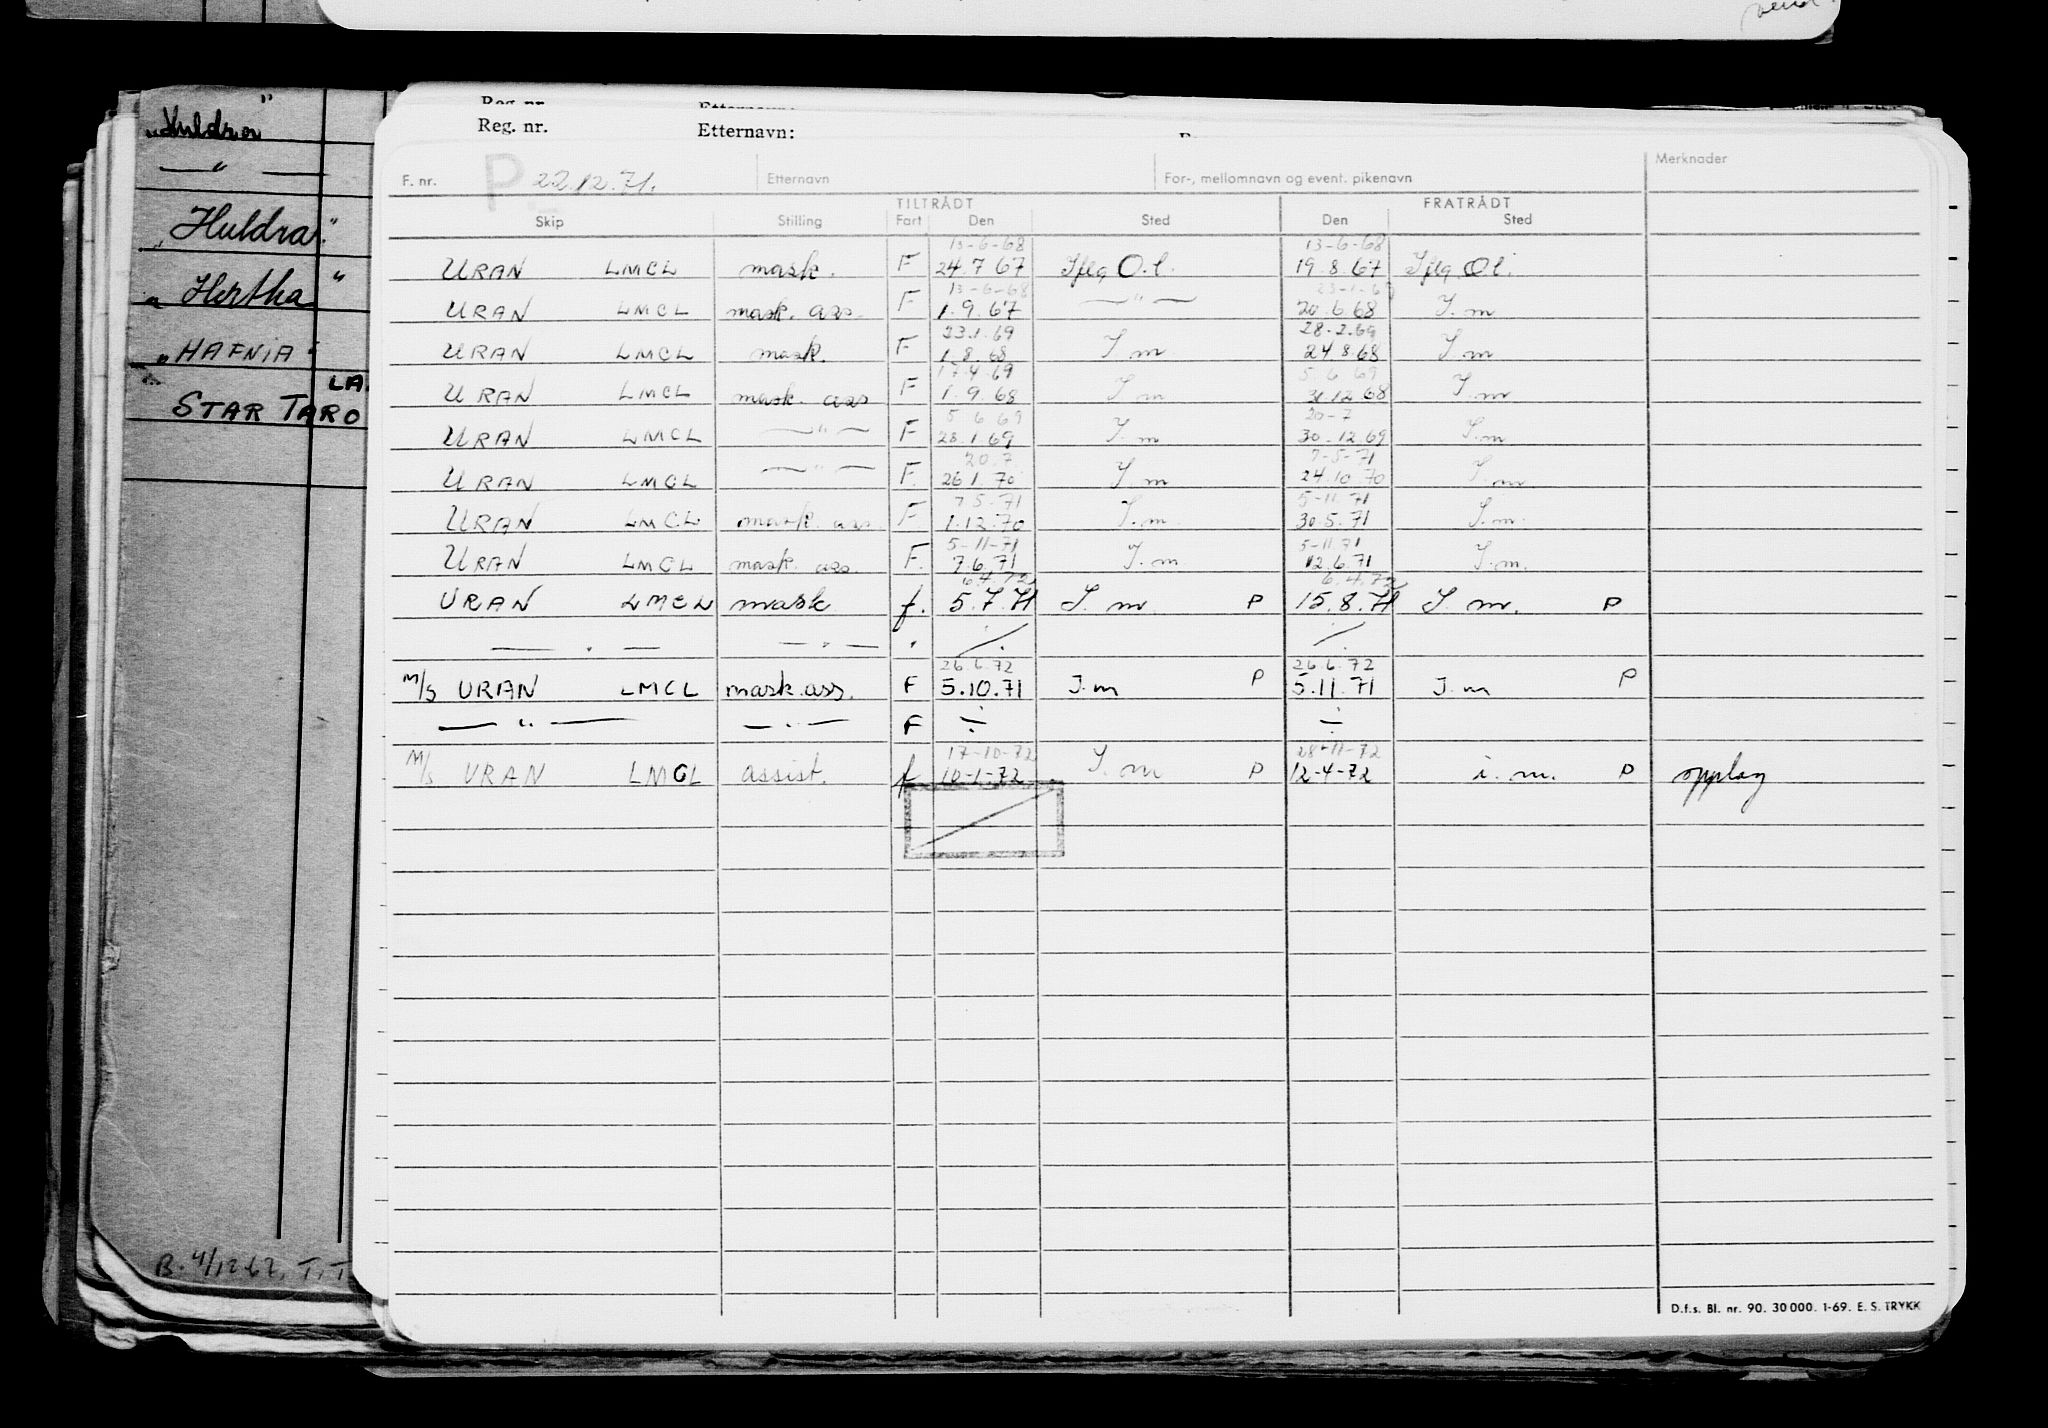 vend.
"Huldra"
— " —
"Huldra"
"Hertha"
"HAFNIA"
LA
STAR TARO
B. 4/12 67, T.T
Reg. nr. Etternavn:
Reg. nr. Etternavn:
P. 22.12.71.
F. nr. Etternavn For-, mellomnavn og event. pikenavn Merknader
TILTRÅDT FRATRÅDT
Skip Stilling Fart Den Sted Den Sted
13-6-68 13-6-68
URAN LMCL mask. F 24.7 67 Iflg O.l. 19.8.67 Iflg. O.l.
13-6-68 23-1-69
URAN LMCL mask. ass. F 1.9.67 — " — 20.6.68 I.m
23.1.69 28-2.69
URAN LMCL mask. F 1.8.68 I m 24.8.68 I m
17.4.69 5.6 69
URAN LMCL mask. ass F 1.9.68 I m 31.12.68 I.m
5 6 69 20-7
URAN LMCL — " — F 28.1 69 I.m 30-12.69 I.m
20.7 7-5-71
URAN LMCL — " — F. 26 1.70 I m 24.10.70 I.m
7.5.71 5-11.71
URAN LMCL mask. ass. F 1.12.70 I.m 30.5.71 I.m.
5-11-71 5-11.71
URAN LMCL mask. ass. F. 7.6.71 I.m 12.6.71 I.m.
6.4.72 6.4.72
URAN LMCL mask f. 5.7.71 I. m. P 15.8.71 I. m. P
— " — — " — " ÷ ÷
26.6.72 26.6.72
M/S URAN LMCL mask.ass. F 5.10.71 I.m P 5.11.71 I.m P
— " — — " — F ÷ ÷
17-10-72 28-11-72
M/S URAN LMCL assist. f 10-1-72 I.m P 12-4-72 i. m. P opplag
D.f.s. Bl. nr. 90. 30 000. 1-69. E. S. TRYKK